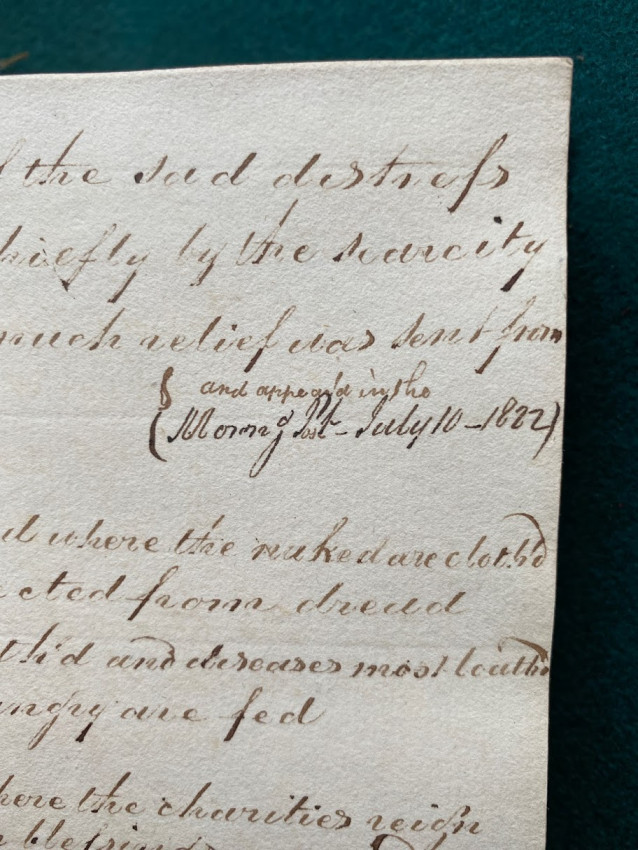 the sad distreſs
hiefly by the scarcity
much relief was sent from
and appeard in the
(Morng Post - July 10 - 1822)
d where the naked are cloth'd
cted from dread
th'd and diseases most loath
ngry are fed
here the charities reign
bleſsings